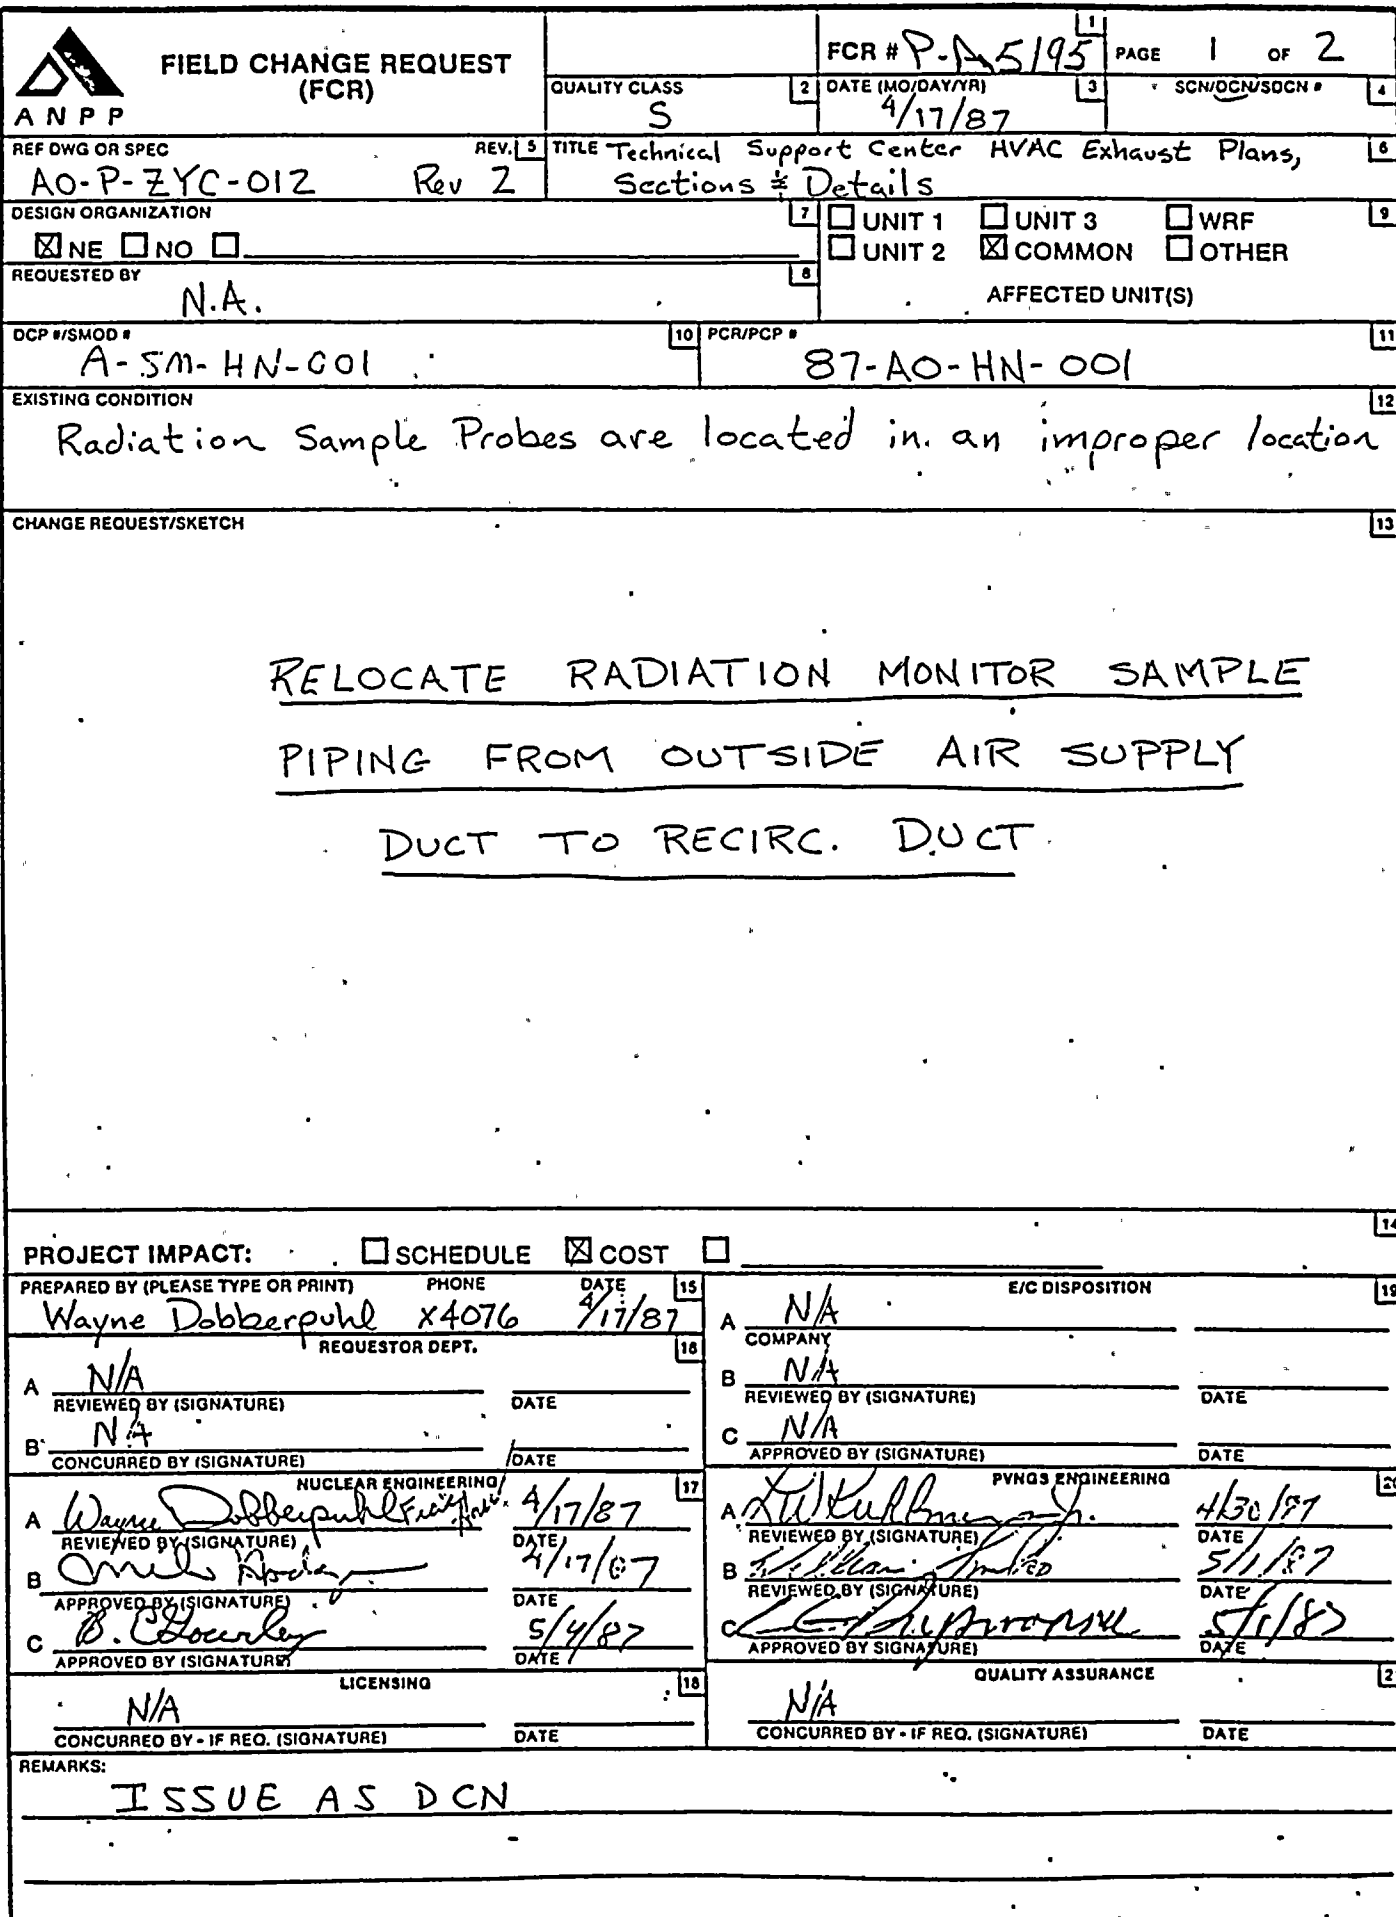 ANPP
FIELD CHANGE REQUEST
(FCR)
FCR # P-A5195 1
PAGE 1 OF 2
QUALITY CLASS 2
S
DATE (MO/DAY/YR) 3
4/17/87
SCN/DCN/SDCN # 4
REF DWG OR SPEC REV. 5
AO-P-ZYC-012 Rev 2
TITLE Technical Support Center HVAC Exhaust Plans, 6
Sections & Details
DESIGN ORGANIZATION 7
☒ NE ☐ NO ☐
REQUESTED BY 8
N.A.
☐ UNIT 1 ☐ UNIT 3 ☐ WRF 9
☐ UNIT 2 ☒ COMMON ☐ OTHER
AFFECTED UNIT(S)
DCP #/SMOD # 10
A-SM-HN-001
PCR/PCP # 11
87-AO-HN-001
EXISTING CONDITION 12
Radiation Sample Probes are located in an improper location
CHANGE REQUEST/SKETCH 13
RELOCATE RADIATION MONITOR SAMPLE
PIPING FROM OUTSIDE AIR SUPPLY
DUCT TO RECIRC. DUCT
14
PROJECT IMPACT: ☐ SCHEDULE ☒ COST ☐
PREPARED BY (PLEASE TYPE OR PRINT) PHONE DATE 15
Wayne Dobberpuhl X4076 4/17/87
REQUESTOR DEPT. 16
A N/A
REVIEWED BY (SIGNATURE) DATE
B N/A
CONCURRED BY (SIGNATURE) DATE
E/C DISPOSITION 19
A N/A
COMPANY
B N/A
REVIEWED BY (SIGNATURE) DATE
C N/A
APPROVED BY (SIGNATURE) DATE
NUCLEAR ENGINEERING 17
A Wayne Dobberpuhl 4/17/87
REVIEWED BY (SIGNATURE) DATE
B 4/17/87
APPROVED BY (SIGNATURE) DATE
C 5/4/87
APPROVED BY (SIGNATURE) DATE
PVNGS ENGINEERING
A 4/30/87
REVIEWED BY (SIGNATURE) DATE
B 5/1/87
REVIEWED BY (SIGNATURE) DATE
C 5/1/87
APPROVED BY SIGNATURE) DATE
LICENSING 18
N/A
CONCURRED BY - IF REQ. (SIGNATURE) DATE
QUALITY ASSURANCE
N/A
CONCURRED BY - IF REQ. (SIGNATURE) DATE
REMARKS:
ISSUE AS DCN